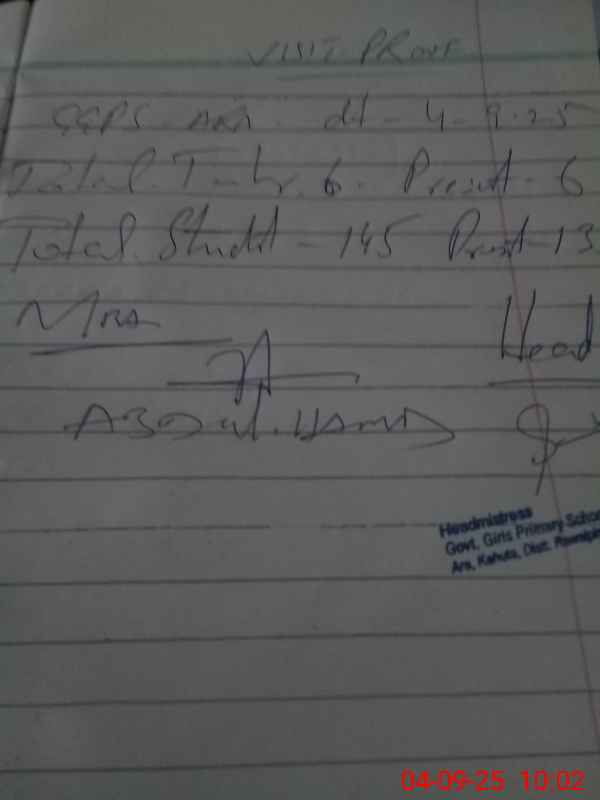 VISIT PROOF
GGPS ARA dt - 4-9-25
Total T 6. Present - 6
Total Studt - 145 Prest - 13
MEA Head
ABDUL HAMID
Headmistress
Govt, Girls Primary Schoo
Ara, Kahuta, Distt. Rawalpin
04-09-25 10:02